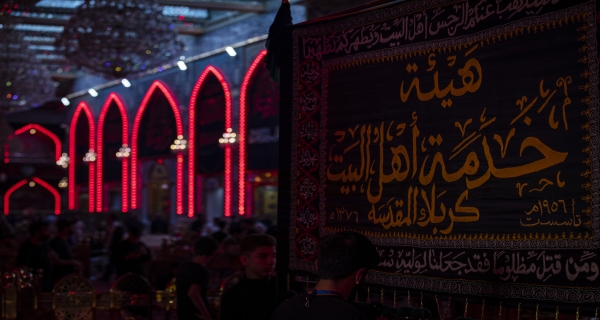 عنكم الرجس أهل البيت ويطهركم تطهيرا
هيئة
خدمة أهل البيت
كربلاء المقدسة
تأسست
١٩٥٦م
١٣٧٦هـ
ومن قتل مظلوما فقد جعلنا لوليه